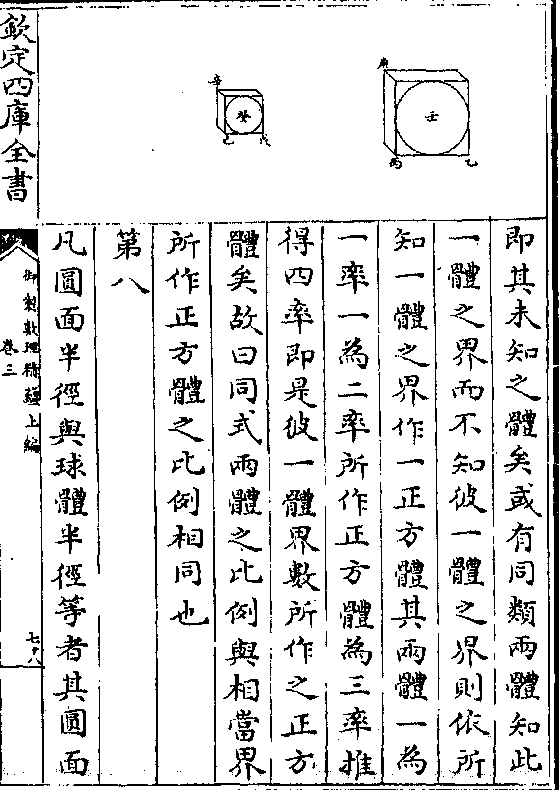 庚
壬
丙
乙
辛
癸
己
戊
即其未知之體矣或有同類兩體知此
一體之界而不知彼一體之界則依所
知一體之界作一正方體其兩體一為
一率一為二率所作正方體為三率推
得四率即是彼一體界數所作之正方
體矣故曰同式兩體之比例與相當界
所作正方體之比例相同也
第八
凡圓面半徑與球體半徑等者其圓面
欽定四庫全書
御製數理精蘊上編
卷三
七十八